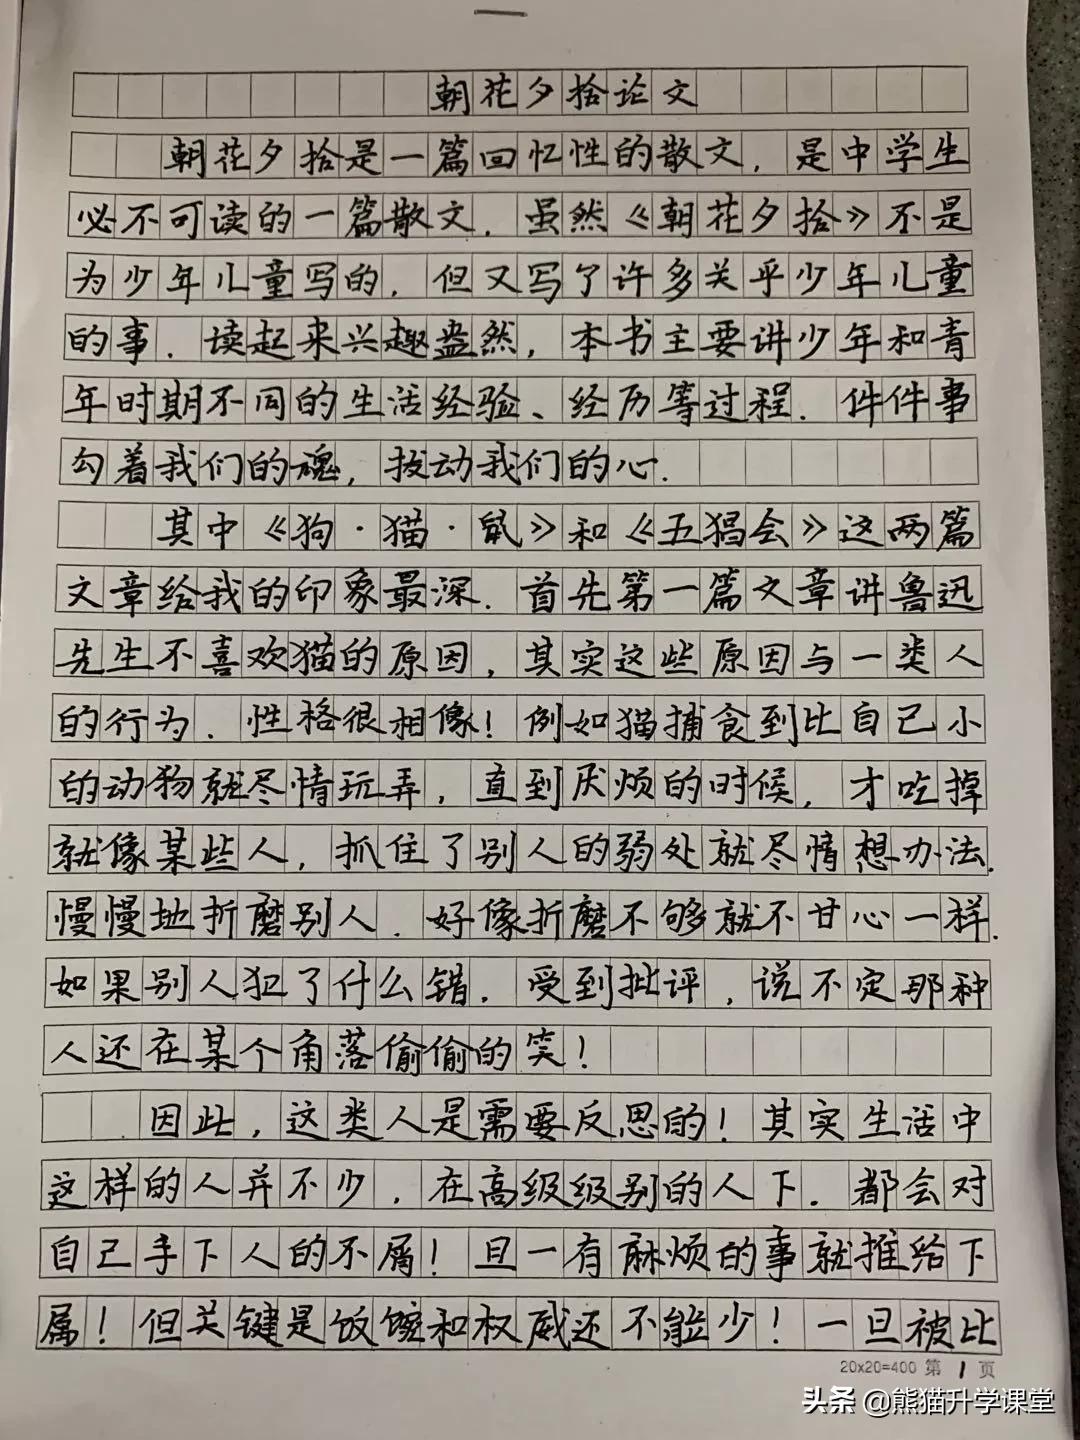 朝花夕拾论文
朝花夕拾是一篇回忆性的散文，是中学生
必不可读的一篇散文．虽然《朝花夕拾》不是
为少年儿童写的，但又写了许多关乎少年儿童
的事．读起来兴趣盎然，本书主要讲少年和青
年时期不同的生活经验、经历等过程．件件事
勾着我们的魂，拔动我们的心．
其中《狗·猫·鼠》和《五猖会》这两篇
文章给我的印象最深．首先第一篇文章讲鲁迅
先生不喜欢猫的原因，其实这些原因与一类人
的行为．性格很相像！例如猫捕食到比自己小
的动物就尽情玩弄，直到厌烦的时候，才吃掉
就像某些人，抓住了别人的弱处就尽情想办法．
慢慢地折磨别人．好像折磨不够就不甘心一样．
如果别人犯了什么错．受到批评，说不定那种
人还在某个角落偷偷的笑！
因此，这类人是需要反思的！其实生活中
这样的人并不少，在高级级别的人下．都会对
自己手下人的不屑！旦一有麻烦的事就推给下
属！但关键是饭碗和权威还不能少！一旦被比
20x20=400 第 1 页
头条 @熊猫升学课堂